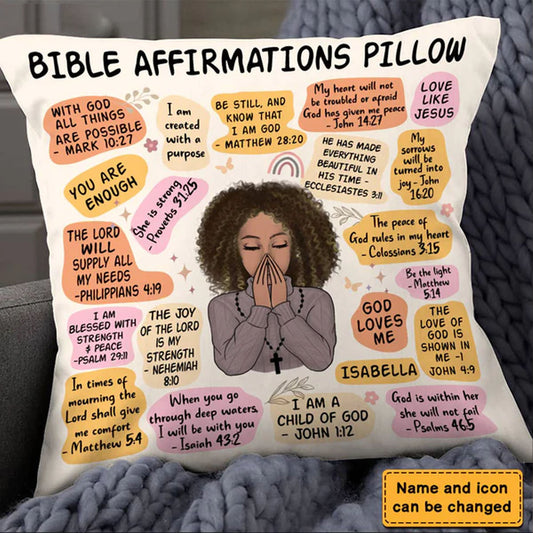 BIBLE AFFIRMATIONS PILLOW
WITH GOD
ALL THINGS
ARE POSSIBLE
- MARK 10:27
I am
created
with a
purpose
BE STILL, AND
KNOW THAT
I AM GOD
- MATTHEW 28:20
My heart will not
be troubled or afraid
God has given me peace
- John 14:27
LOVE
LIKE
JESUS
YOU ARE
ENOUGH
She is strong
- Proverbs 31:25
HE HAS MADE
EVERYTHING
BEAUTIFUL IN
HIS TIME -
ECCLESIASTES 3:11
My
sorrows
will be
turned into
joy - John
16:20
THE LORD
WILL
SUPPLY ALL
MY NEEDS
-PHILIPPIANS 4:19
The peace of
God rules in my heart
- Colossians 3:15
Be the light
- Matthew
5:14
I AM
BLESSED WITH
STRENGTH
& PEACE
-PSALM 29:11
THE JOY
OF THE LORD
IS MY
STRENGTH -
NEHEMIAH
8:10
GOD
LOVES
ME
THE
LOVE OF
GOD IS
SHOWN IN
ME -1
JOHN 4:9
ISABELLA
In times of
mourning the
Lord shall give
me comfort
- Matthew 5:4
When you go
through deep waters,
I will be with you
- Isaiah 43:2
I AM A
CHILD OF GOD
- JOHN 1:12
God is within her
she will not fail
- Psalms 46:5
Name and icon
can be changed